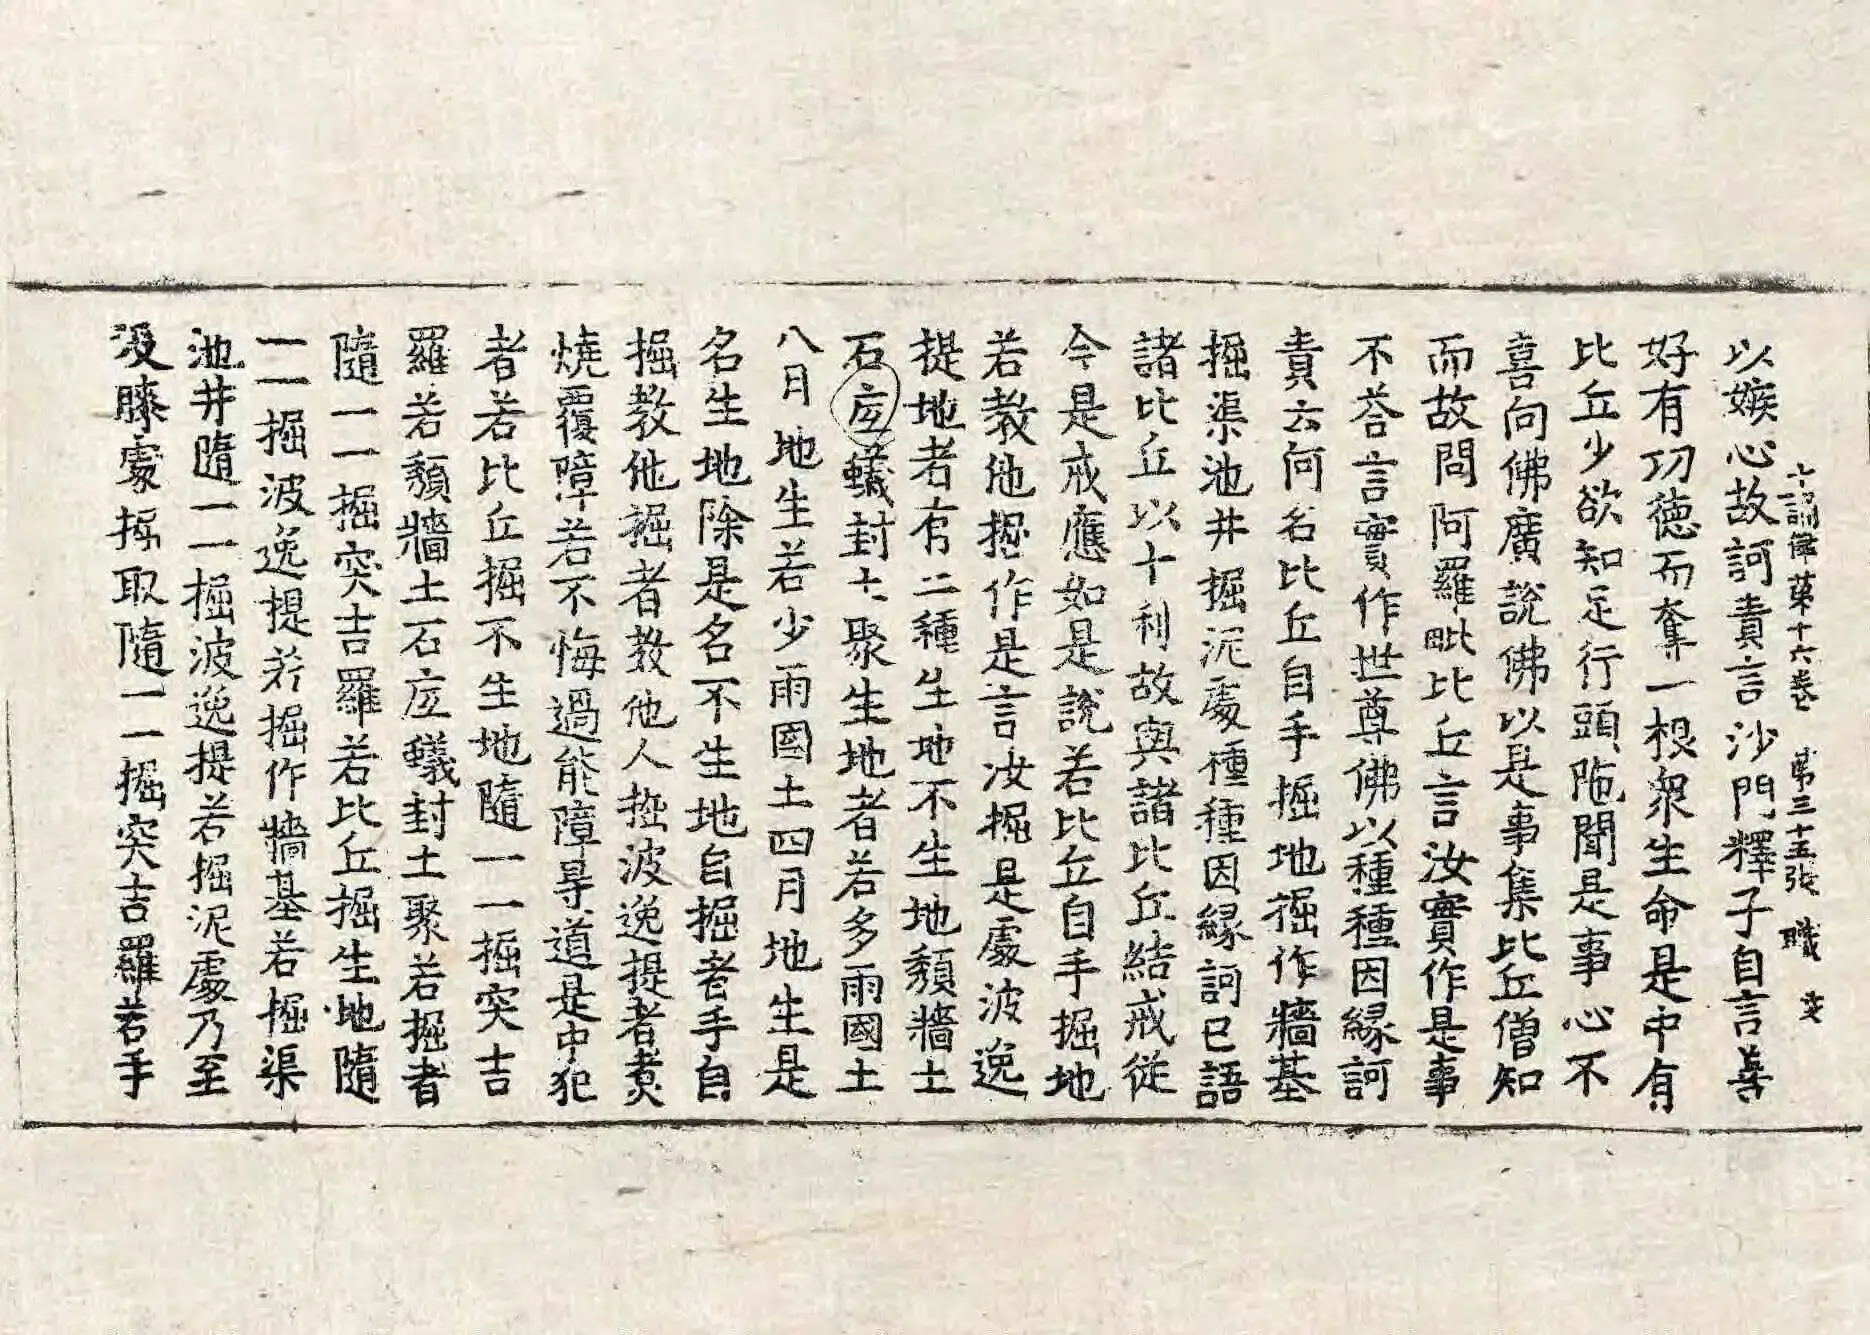 十誦律第十六卷 第三十五張 職
以嫉心故訶責言沙門釋子自言善
好有功德而奪一根衆生命是中有
比丘少欲知足行頭陁聞是事心不
喜向佛廣說佛以是事集比丘僧知
而故問阿羅毗比丘言汝實作是事
不荅言實作世尊佛以種種因緣訶
責云何名比丘自手掘地掘作牆基
掘渠池井掘泥處種種因緣訶已語
諸比丘以十利故與諸比丘結戒從
今是戒應如是說若比丘自手掘地
若教他掘作是言汝掘是處波逸
提地者有二種生地不生地頹牆土
石㡿蟻封土聚生地者若多雨國土
八月地生若少雨國土四月地生是
名生地除是名不生地自掘者手自
掘教他掘者教他人掘波逸提者煑
燒覆障若不悔過能障㝵道是中犯
者若比丘掘不生地隨一一掘突吉
羅若頹牆土石㡿蟻封土聚若掘者
隨一一掘突吉羅若比丘掘生地隨
一一掘波逸提若掘作牆基若掘渠
池井隨一一掘波逸提若掘泥處乃至
沒膝處掘取隨一一掘突吉羅若手